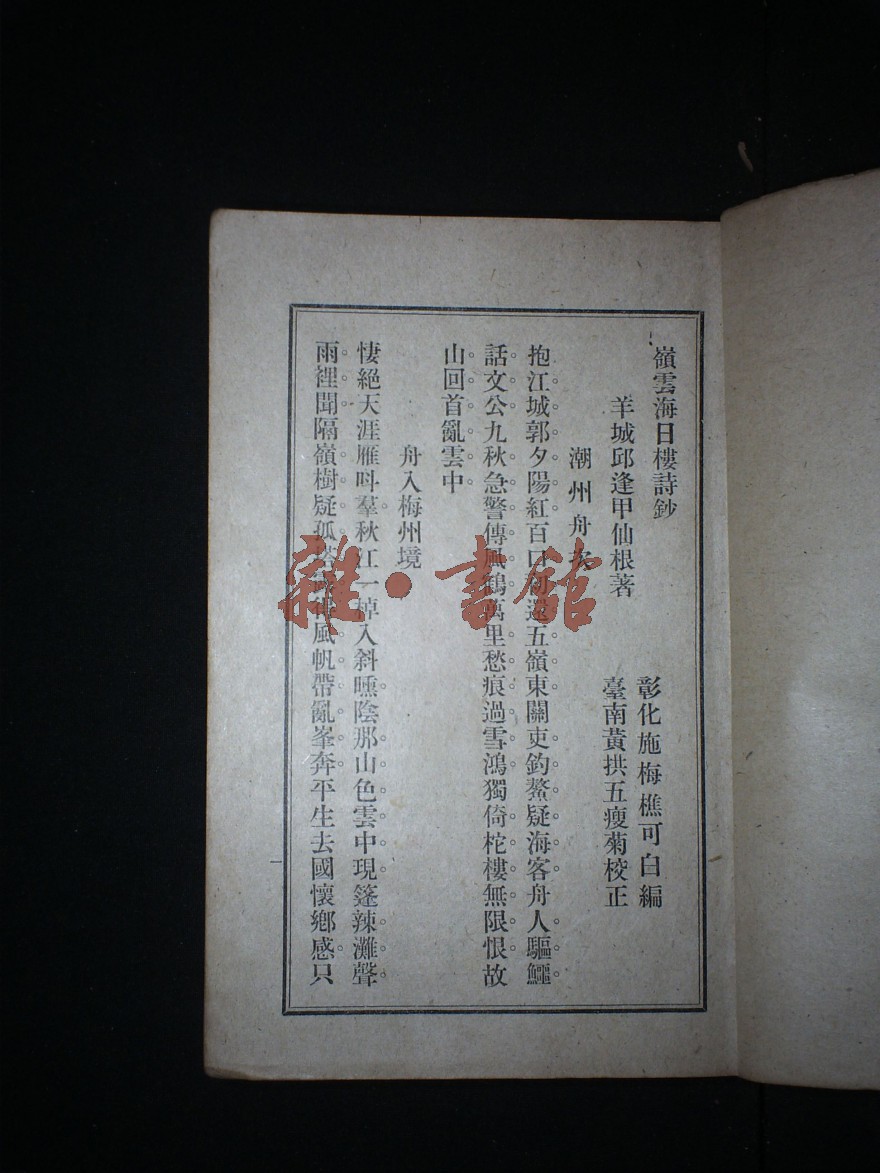 嶺雲海日樓詩鈔
彰化施梅樵可白編
羊城邱逢甲仙根著
臺南黃拱五瘦菊校正
潮州舟
抱江城郭夕陽紅百口初還五嶺東關吏釣鰲疑海客舟人驅鱷
話文公九秋急警傳風鶴萬里愁痕過雪鴻獨倚柁樓無限恨故
山回首亂雲中
舟入梅州境
悽絕天涯雁呌羣秋江一棹入斜曛陰那山色雲中現篷辣灘聲
雨裡聞隔嶺樹疑孤塔風帆帶亂峯奔平生去國懷鄉感只
一
雜·書館